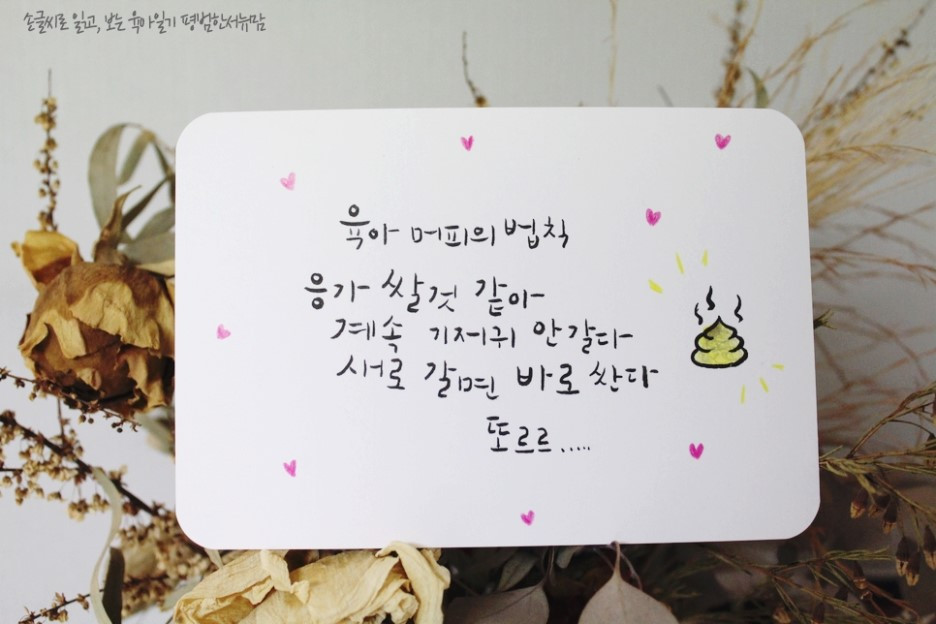 손글씨로 읽고, 보는 육아일기 평범한서뉴맘
육아 머피의 법칙
응가 쌀것 같아
계속 기저귀 안갈다
새로 갈면 바로 싼다
또르르.....